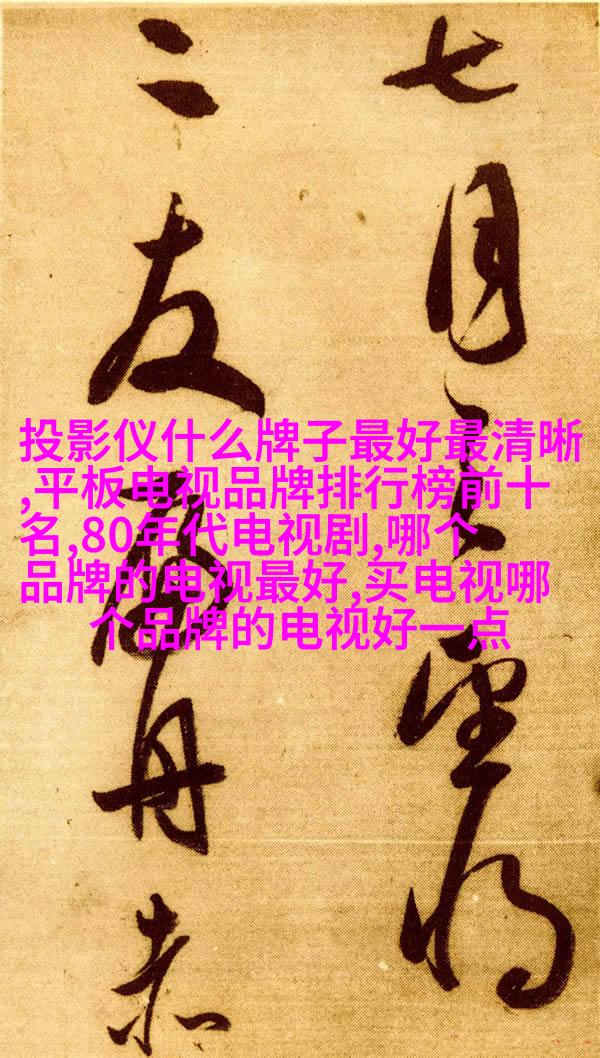 七月之望将
二友属舟赤
投影仪什么牌子最好最清晰
,平板电视品牌排行榜前十
名,80年代电视剧,哪个
品牌的电视最好,买电视哪
个品牌的电视好一点